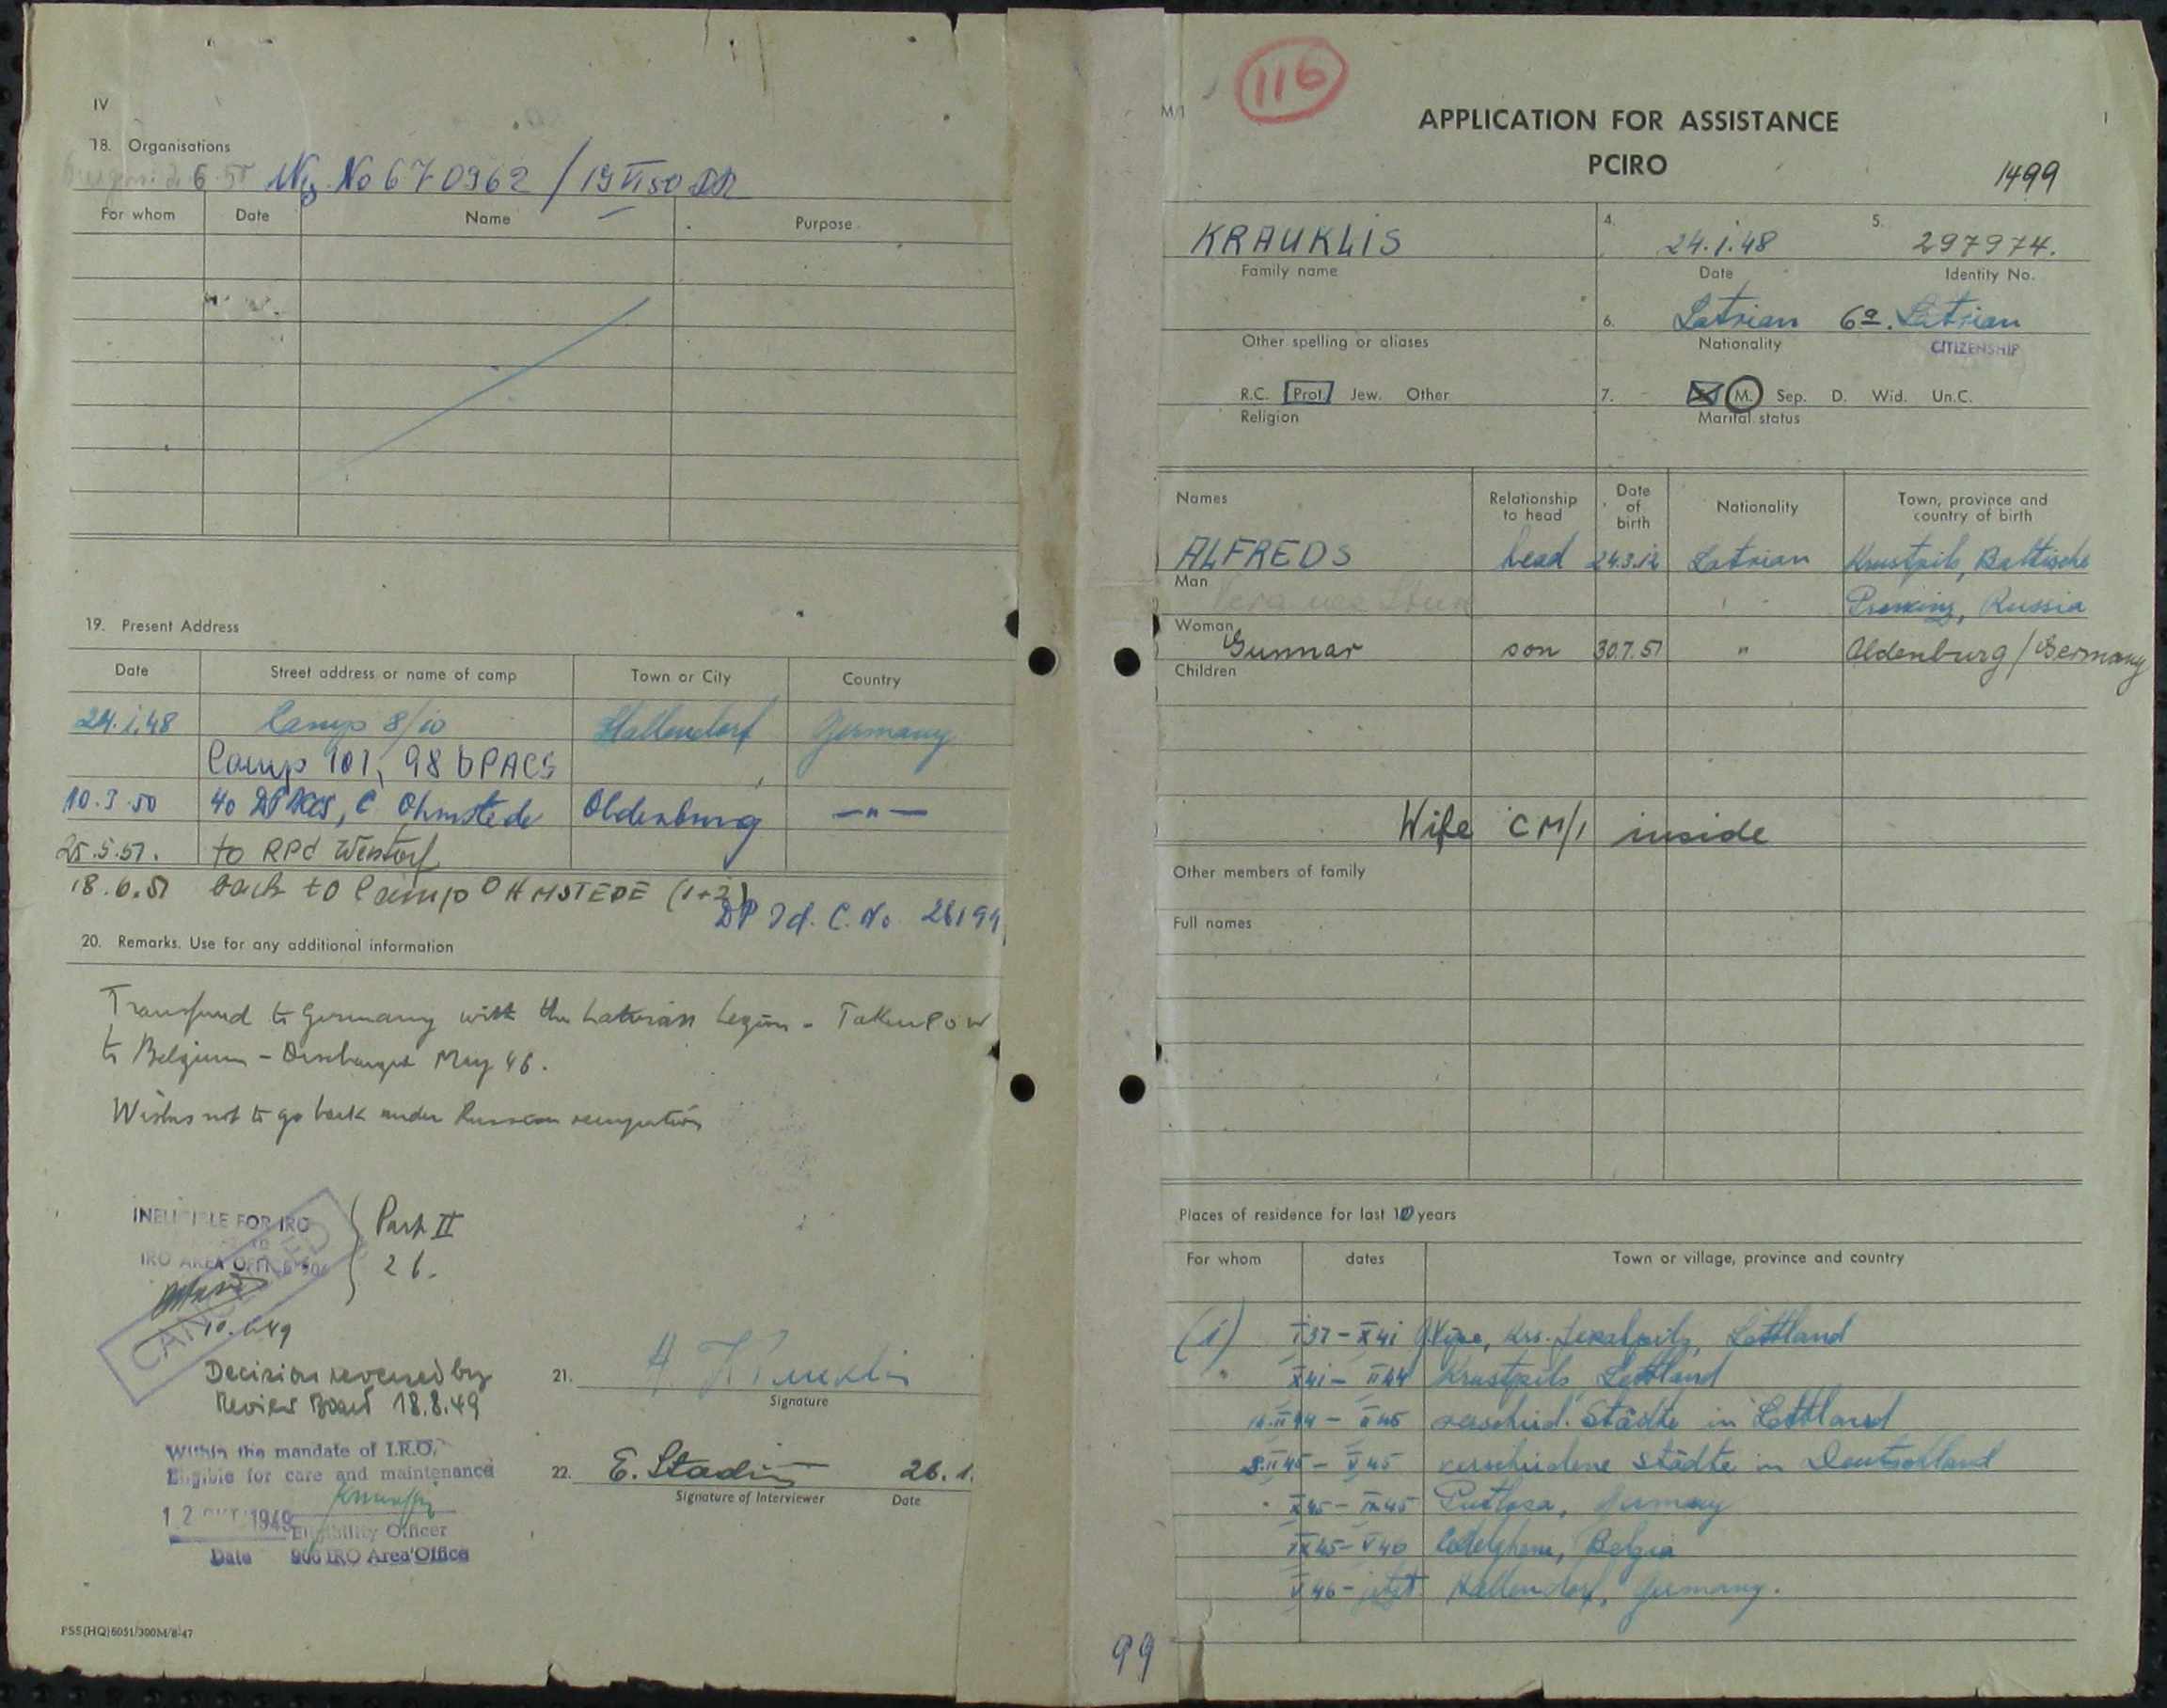 IV
18. Organisations
6 51 No 670962 / 19 VI 50
For whom Date Name Purpose
19. Present Address
Date Street address or name of camp Town or City Country
24.1.48 Camp 8/10 Hallendorf Germany
Camp 101, 98 DPACS
10.3.50 40 DPACS, C Ohmstede Oldenburg — " —
25.5.51. to RPC Wentorf
18.6.51 back to Camp OHMSTEDE (1+2)
DP Id. C. No. 26199
20. Remarks. Use for any additional information
Transferred to Germany with the Latvian Legion - Taken POW
to Belgium - Discharged May 46.
Wishes not to go back under Russian occupation
INELIGIBLE FOR IRO Part II
IRO AREA OFFICE 906 26.
CANCELLED
10.6.49
Decision reversed by
Review Board 18.8.49
21. A. Krauklis
Signature
Within the mandate of I.R.O.
Eligible for care and maintenance
22. E. Stadin 26.1.
Signature of Interviewer Date
12 OKT 1949
Eligibility Officer
Date 906 IRO Area Office
PSS(HQ)6051/300M/8-47
116
APPLICATION FOR ASSISTANCE
PCIRO
1499
KRAUKLIS 4. 24.1.48 5. 297974.
Family name Date Identity No.
6. Latvian 6a. Latvian
Other spelling or aliases Nationality CITIZENSHIP
R.C. Prot. Jew. Other 7. M. Sep. D. Wid. Un.C.
Religion Marital status
Names Relationship to head Date of birth Nationality Town, province and country of birth
ALFREDS head 24.3.12 Latvian Krustpils, Baltische
Man
Provinz, Russia
Woman
Gunnar son 30.7.51 " Oldenburg / Germany
Children
Wife CM/1 inside
Other members of family
Full names
Places of residence for last 10 years
For whom dates Town or village, province and country
(1) I 37 - X 41 Krs. Jekabpils, Lettland
" X 41 - II 44 Krustpils, Lettland
II 44 - II 45 verschied. Städte in Lettland
II 45 - V 45 verschiedene Städte in Deutschland
IX 45 Putlosa, Germany
IX 45 - V 46 Belgia
V 46 - jetzt Hallendorf, Germany.
99